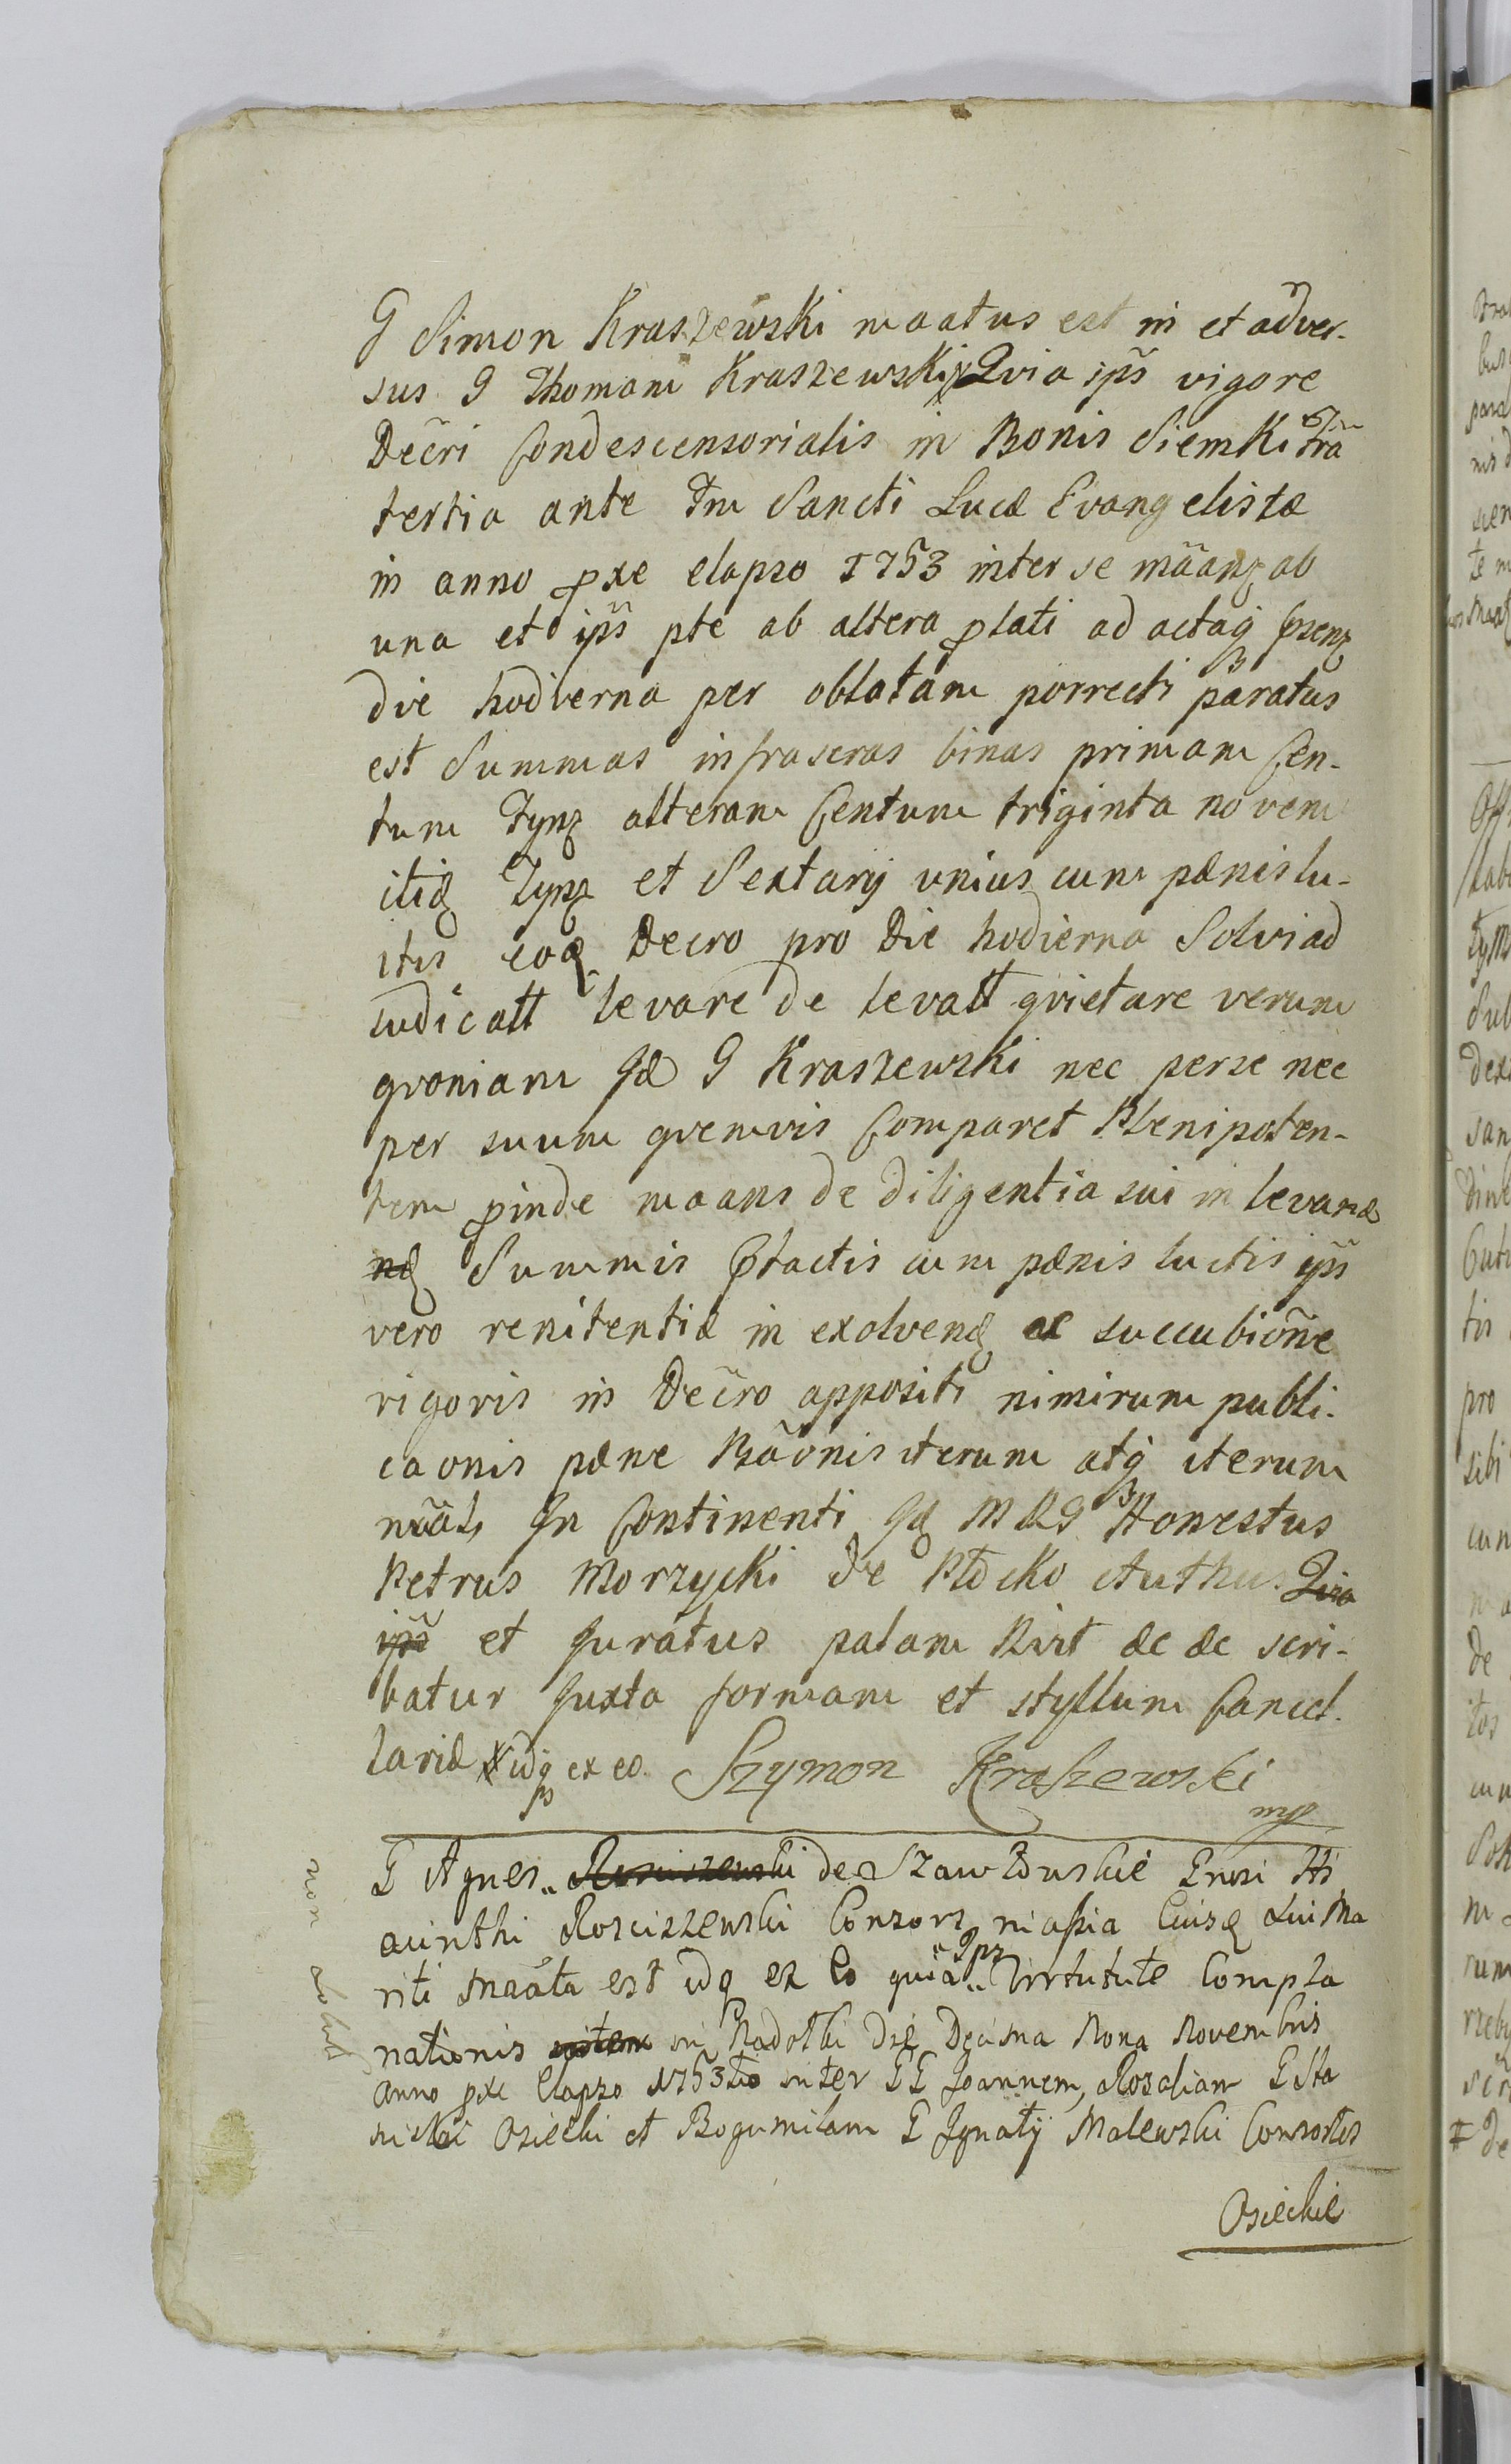 G Simon Kraszewski maatus est in et adver-
sus G Thomam Kraszewski Qvia ips vigore
Decri Condescensorialis in Bonis Siemki fra
tertia ante Fm Sancti Lucæ Evangelistæ
in anno pxe elapso 1753 inter se maanz ab
una et ips pte ab altera plati ad actaq psenz
die hodierna per oblatam porrecti paratus
est Summas infrascras binas primam Cen-
tum Tynz alteram Centum triginta novem
itiq Tynz et Sextarij unius cum pænis lu-
itis eoq Decro pro Die hodierna Solvi ad
iudicatt levare de levatt qvietare verum
qvoniam Iæ G Kraszewski nec perse nec
per suum qvemvis Comparet Plenipoten-
tem pinde maans de diligentia sui in levanæ
Summis Ptactis cum pænis luctis ips
vero renitentiæ in exolvenq ac succubione
rigoris in Decro appositi nimirum publi-
caonis pæne Baonis iterum atq iterum
In Continenti Iq MRG Honestus
Petrus Morzycki de Plocko Authus Qia
ips et Juratus palam Rirt &c &c scri-
batur Juxta formam et styllum Cancel-
lariæ idq ex eo. Szymon Kraszewski
mp
G Agnes Rosciszewski de Szawłowskie Grosi Hi
acinthi Rosciszewski Consors in assia Cuisq sui Ma
riti Maata est idq ex Eo quia Ips Virtutute Compla
nationis in Radotki die Decima Nona Novembris
Anno pxe Elapso 1753tio inter GG Joannem, Rosaliam G Sta
nislai Osiecki et Bogumilam G Ignatij Malewski Consortes
Osieckie
non